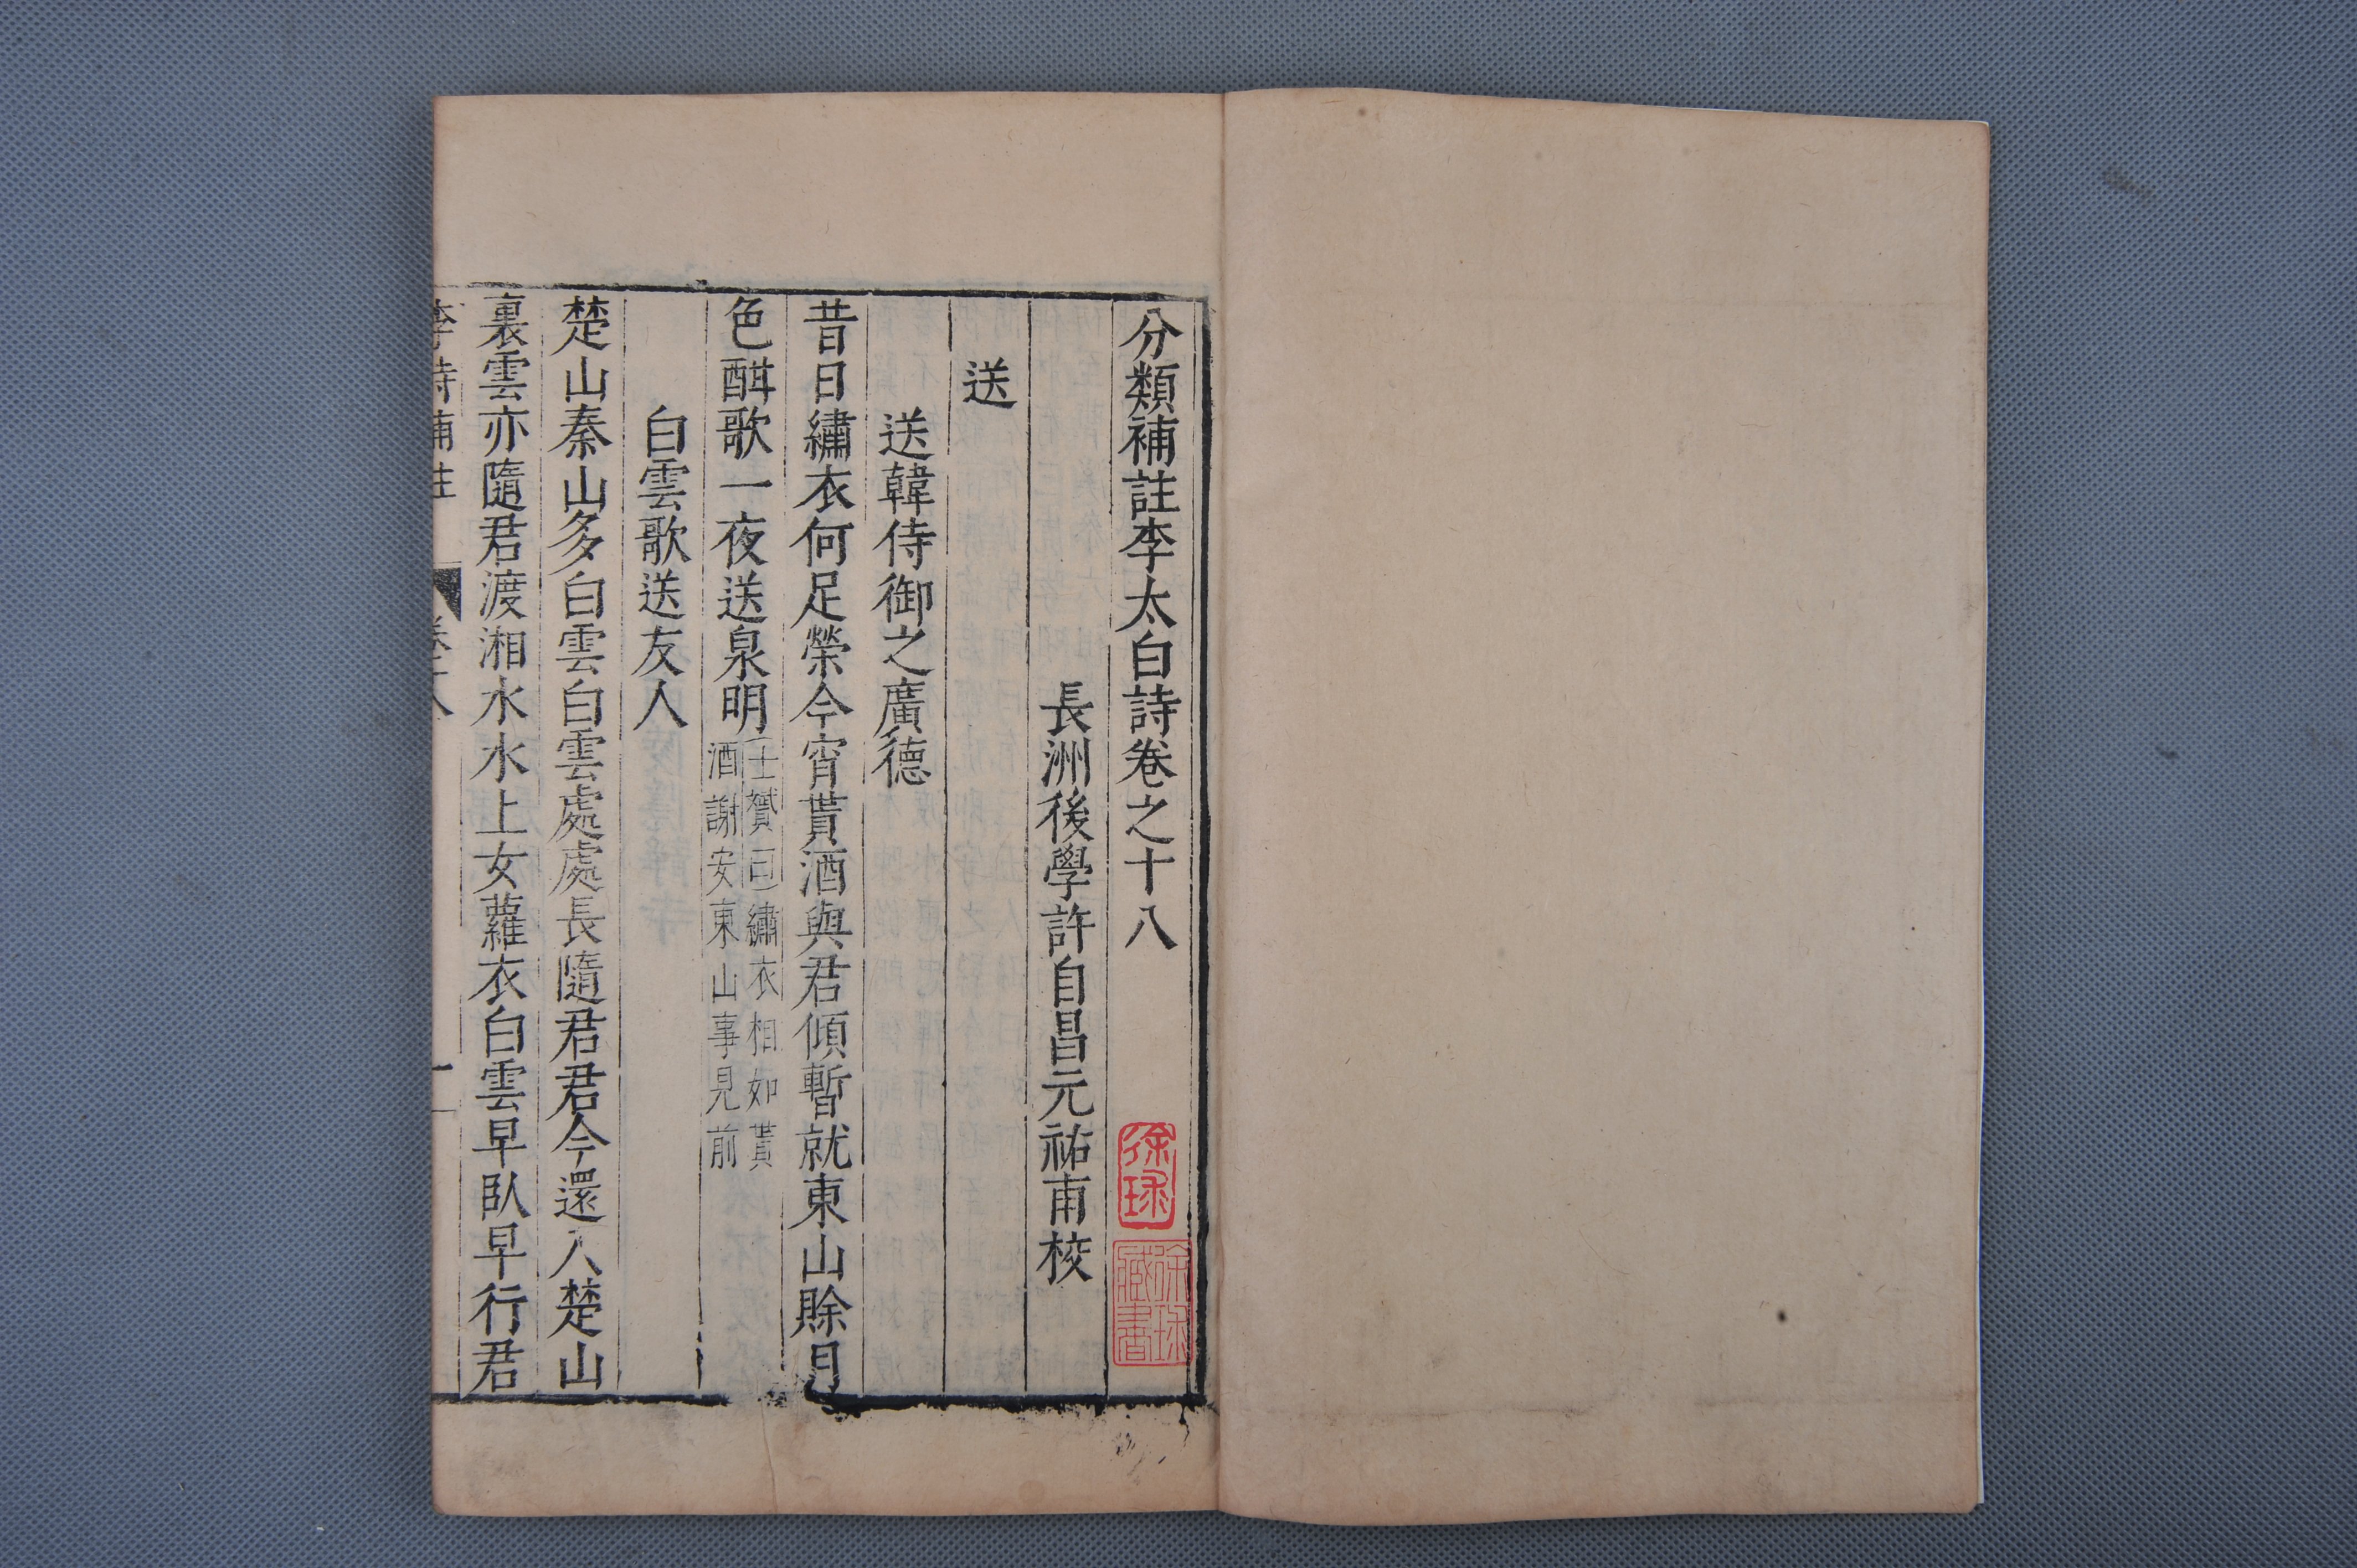 分類補註李太白詩卷之十八
長洲後學許自昌元祐甫校
送
送韓侍御之廣德
昔日繡衣何足榮今宵貰酒與君傾暫就東山賖月
色酣歌一夜送泉明
士贇曰繡衣相如貰
酒謝安東山事見前
白雲歌送友人
楚山秦山多白雲白雲處處長隨君君今還入楚山
裏雲亦隨君渡湘水水上女蘿衣白雲早臥早行君
李詩補註 卷十八 一
徐㻋
徐㻋藏書